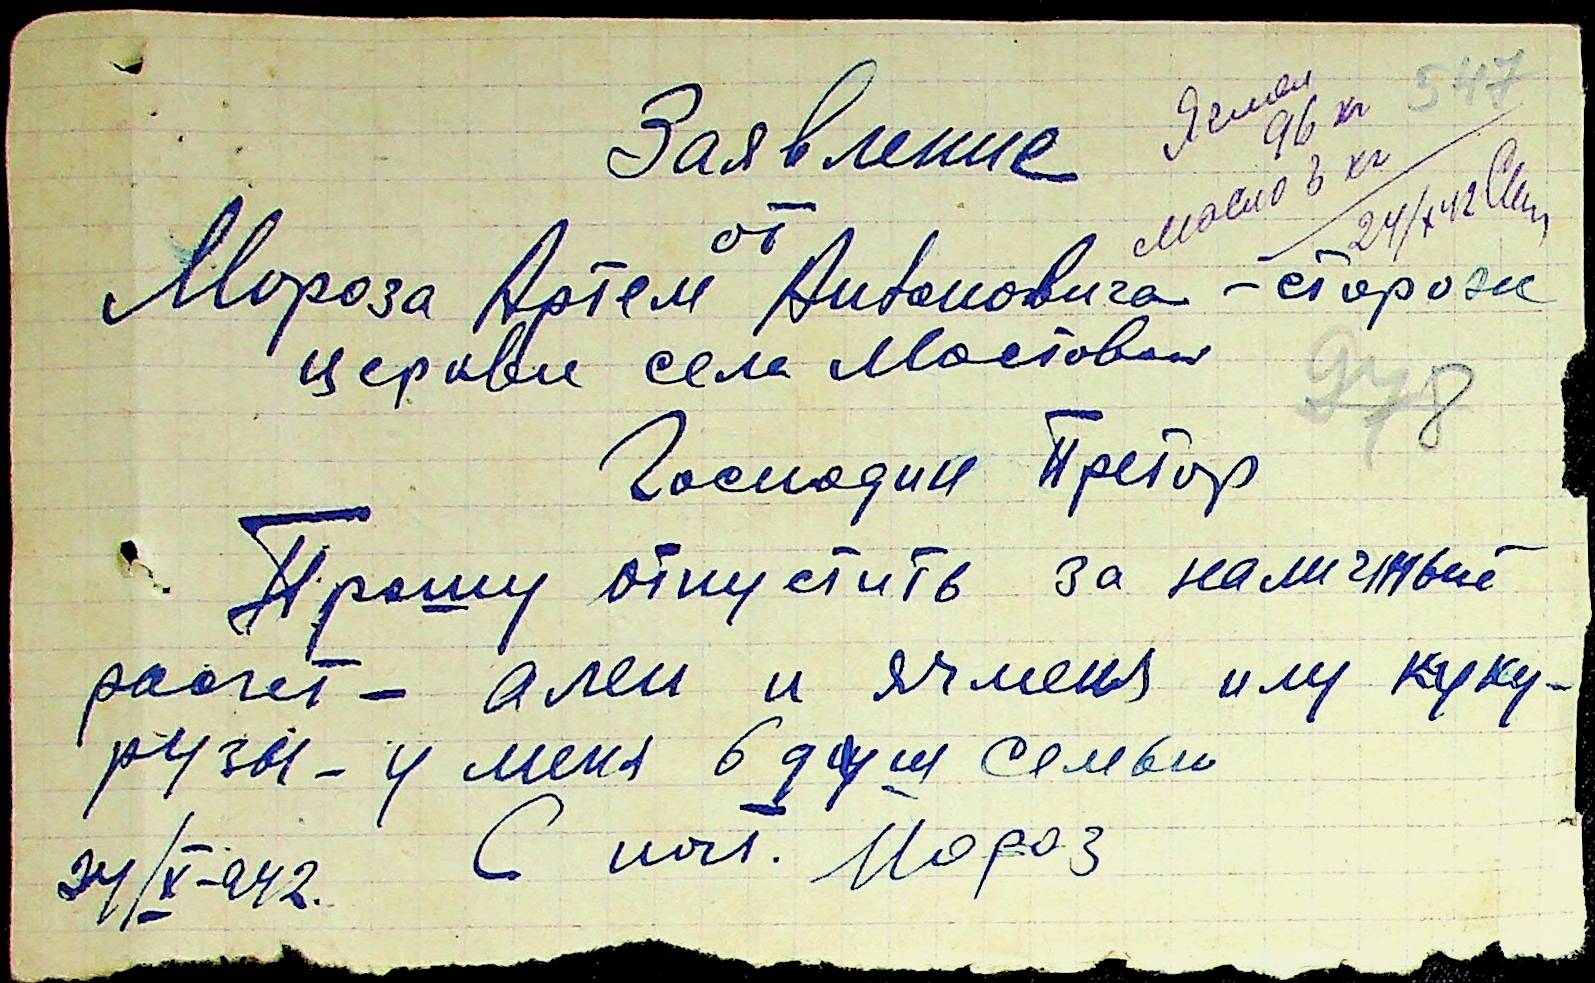 Заявление
от
Мороза Артем Антоновича - сторож
церкви села Мостовое
Господин Претор
Прошу отпустить за наличный
расчет - алеи и ячменя или куку-
рузы - у меня 6 душ семьи
С поч. Мороз
24/X-942.
Ячмен
96 кг
масло 3 кг
24/X 42
547
8